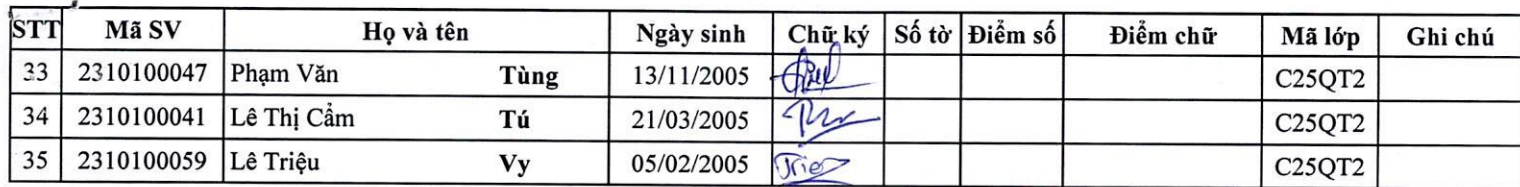 STT Mã SV Họ và tên Ngày sinh Chữ ký Số tờ Điểm số Điểm chữ Mã lớp Ghi chú
33 2310100047 Phạm Văn Tùng 13/11/2005 C25QT2
34 2310100041 Lê Thị Cẩm Tú 21/03/2005 C25QT2
35 2310100059 Lê Triệu Vy 05/02/2005 C25QT2